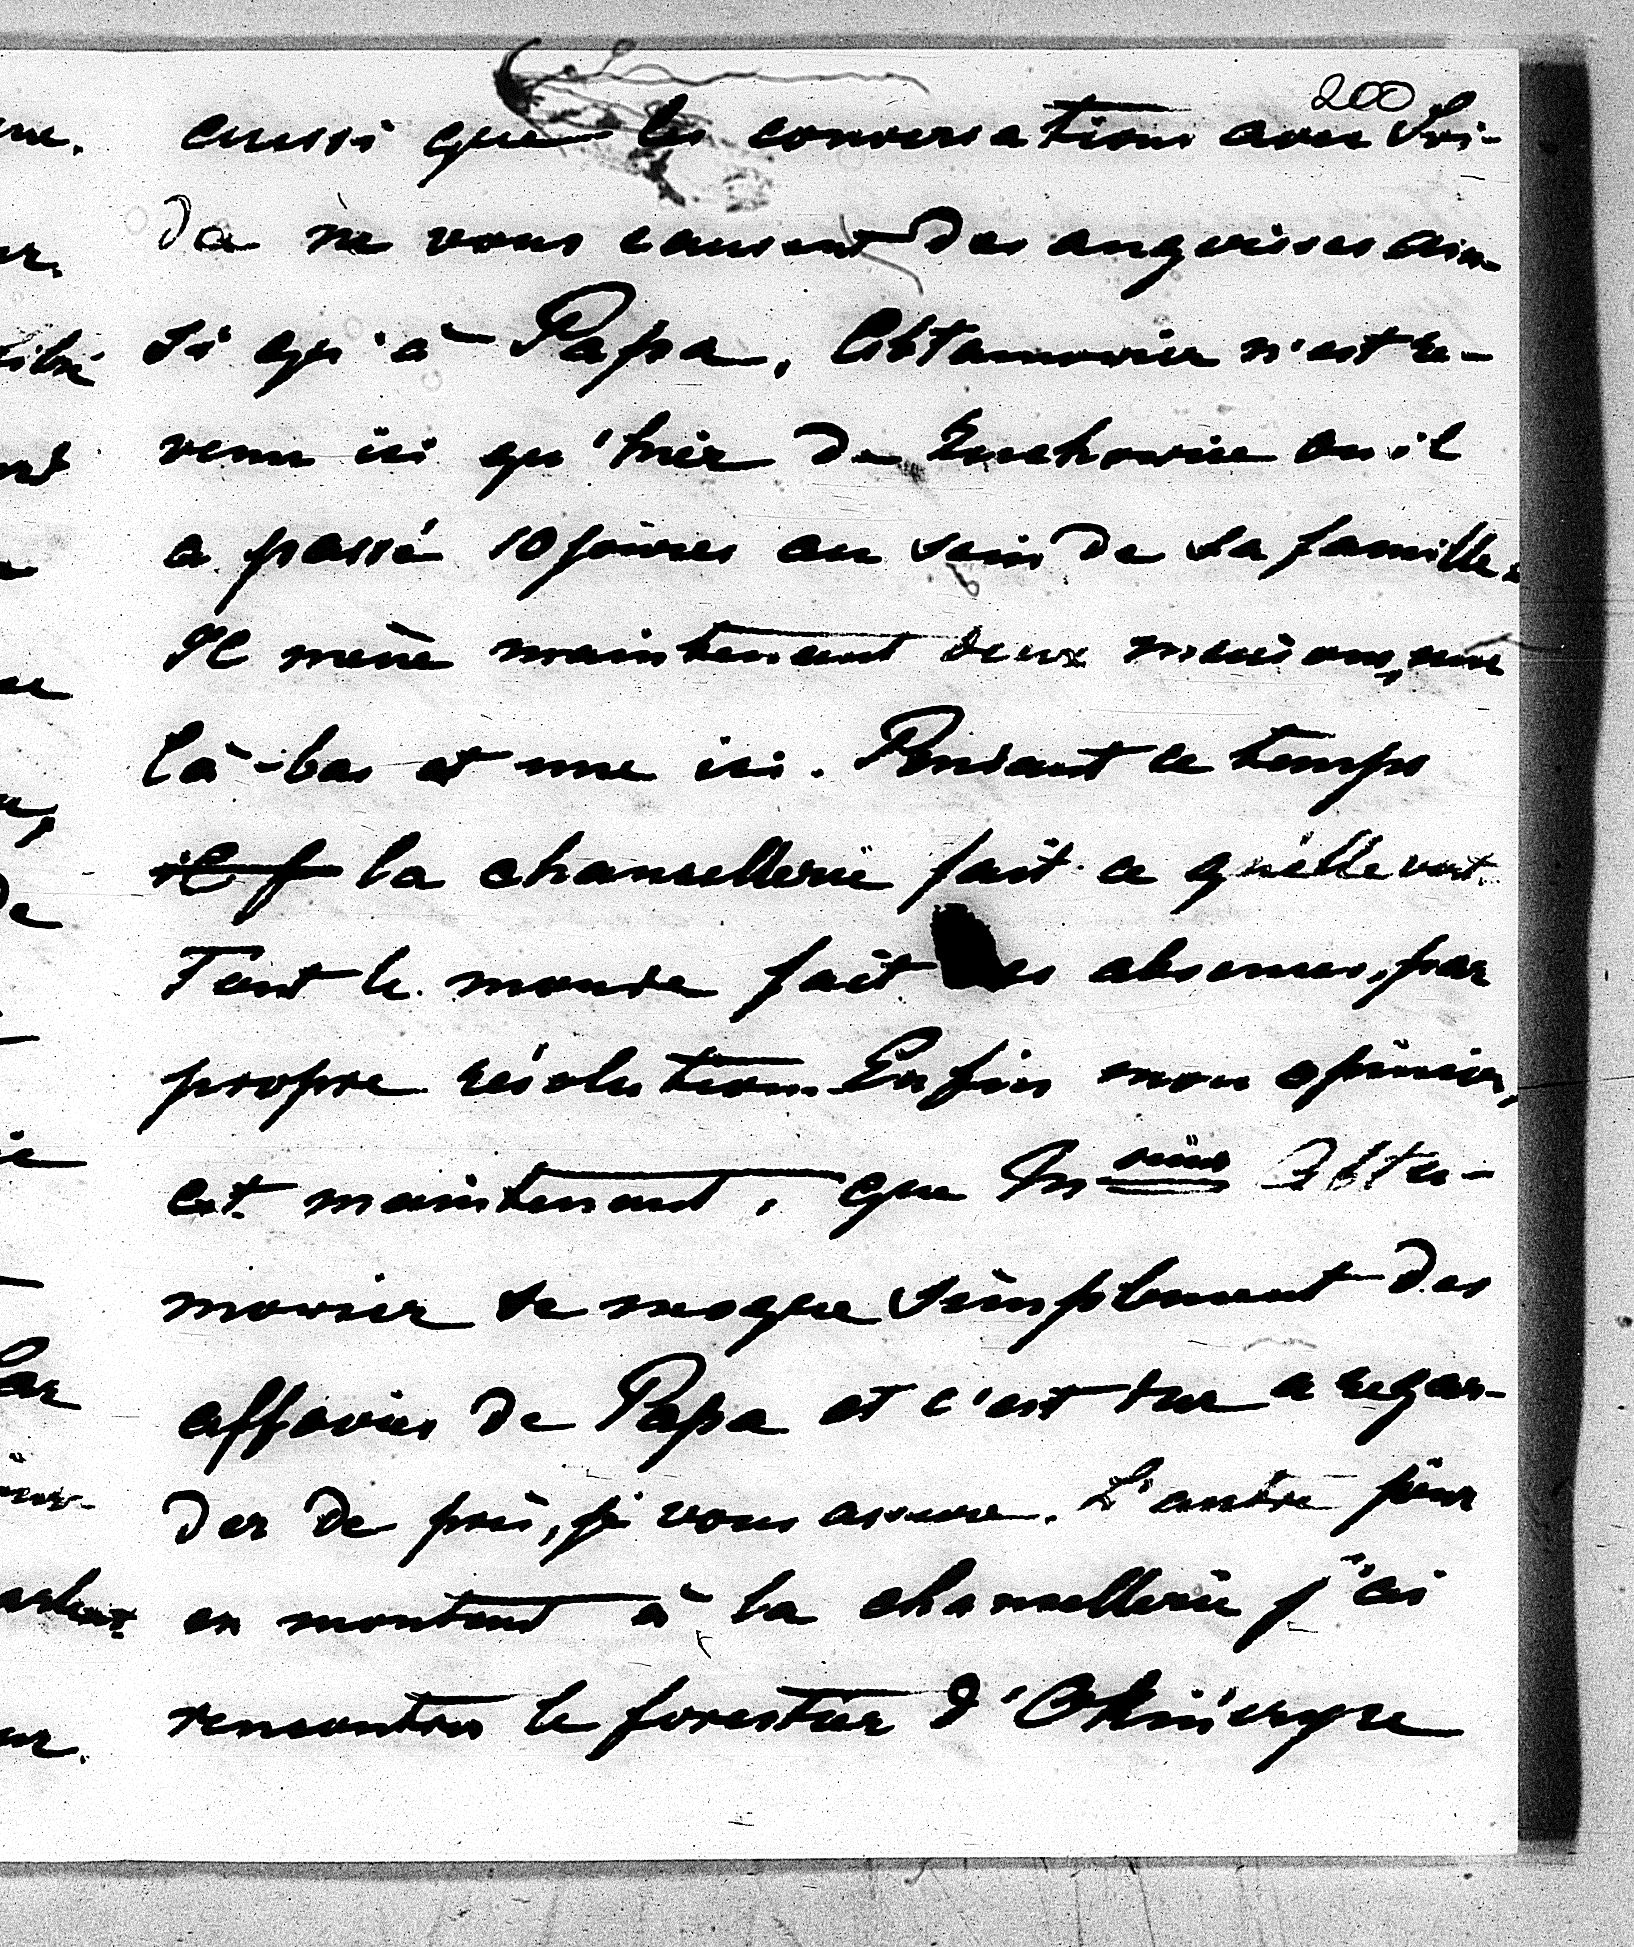 200
aussi que les conversations avec Soi-
da ne vous causent des angoisses ain-
si qu'à Papa. Abtamowicz n'est re-
venu ici qu'hier de où il
a passé 10 jours au sein de sa famille.
Il mène maintenant deux maisons, une
là-bas et une ici. Pendant ce temps
il f la chancellerie fait ce qu'elle veut.
Tout le monde fait des absences, par
propre résolution. Enfin mon opinion,
est maintenant, que Abta-
mowicz se moque simplement des
affaires de Papa et c'est sur a regar-
der de près, je vous assure. L'autre jour
en montant à la chancellerie j'ai
rencontré le forestier d'